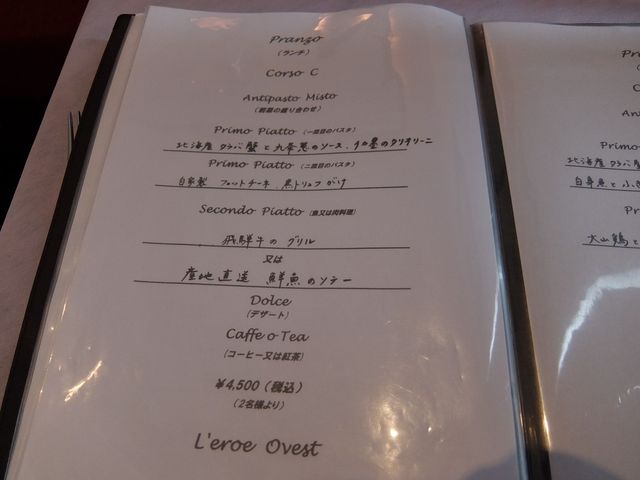 Pranzo
(ランチ)
Corso C
Antipasto Misto
(前菜の盛り合わせ)
Primo Piatto (一皿目のパスタ)
北海産 タラバ蟹と九条葱のソース、イカ墨のタリオリーニ
Primo Piatto (二皿目のパスタ)
自家製 フェットチーネ、黒トリュフがけ
Secondo Piatto (魚又は肉料理)
飛騨牛の グリル
又は
産地直送 鮮魚のソテー
Dolce
(デザート)
Caffe o Tea
(コーヒー又は紅茶)
¥4,500 (税込)
(2名様より)
L'eroe Ovest
Pr
C
An
Primo
北海産 タラバ
白身魚と
Pr
大山鶏と